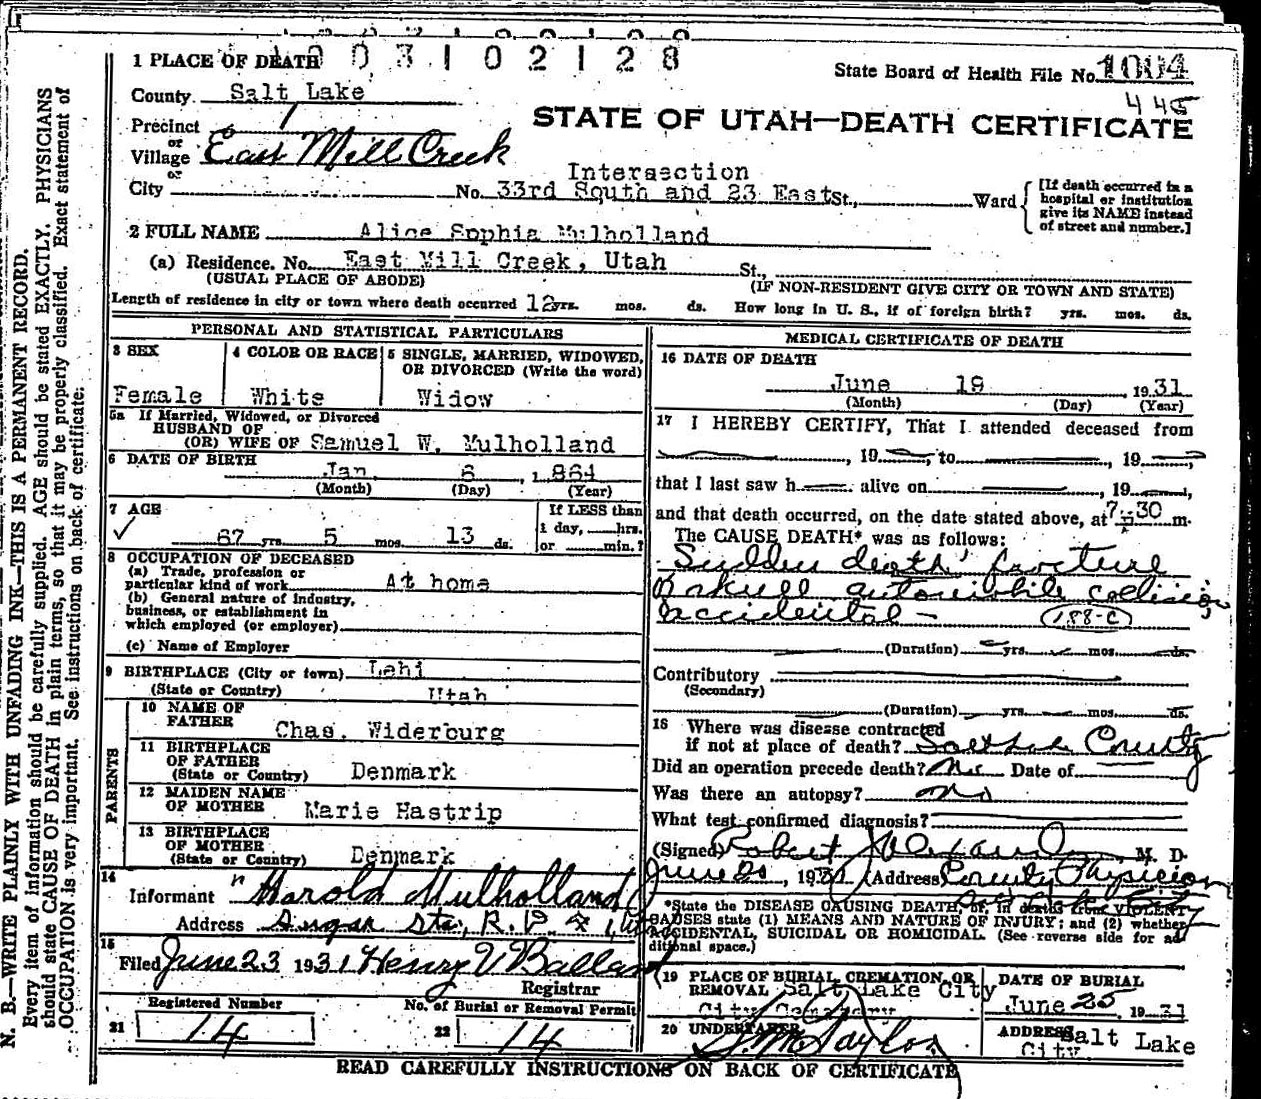 1003102128
1 PLACE OF DEATH
State Board of Health File No. 1004
445
County Salt Lake
STATE OF UTAH—DEATH CERTIFICATE
Precinct
or
Village East Mill Creek
or
Intersection
City No. 33rd South and 23 East St., Ward
[If death occurred in a
hospital or institution
give its NAME instead
of street and number.]
2 FULL NAME Alice Sophia Mulholland
(a) Residence. No. East Mill Creek, Utah St.,
(USUAL PLACE OF ABODE) (IF NON-RESIDENT GIVE CITY OR TOWN AND STATE)
Length of residence in city or town where death occurred 12 yrs. mos. ds. How long in U. S., if of foreign birth? yrs. mos. ds.
PERSONAL AND STATISTICAL PARTICULARS
3 SEX
Female
4 COLOR OR RACE
White
5 SINGLE, MARRIED, WIDOWED,
OR DIVORCED (Write the word)
Widow
5a If Married, Widowed, or Divorced
HUSBAND OF
(OR) WIFE OF Samuel W. Mulholland
6 DATE OF BIRTH
Jan 6, 1864
(Month) (Day) (Year)
7 AGE
67 yrs. 5 mos. 13 ds.
If LESS than
1 day, hrs.
or min.?
8 OCCUPATION OF DECEASED
(a) Trade, profession or
particular kind of work At home
(b) General nature of industry,
business, or establishment in
which employed (or employer)
(c) Name of Employer
9 BIRTHPLACE (City or town) Lehi
(State or Country) Utah
PARENTS
10 NAME OF
FATHER Chas. Widerburg
11 BIRTHPLACE
OF FATHER
(State or Country) Denmark
12 MAIDEN NAME
OF MOTHER Marie Hastrip
13 BIRTHPLACE
OF MOTHER
(State or Country) Denmark
14
Informant Harold Mulholland
Address Sugar Sta, R.D. 4
15
Filed June 23 1931 Henry V Ballard
Registrar
Registered Number
21 14
No. of Burial or Removal Permit
22 14
MEDICAL CERTIFICATE OF DEATH
16 DATE OF DEATH
June 19 1931
(Month) (Day) (Year)
17 I HEREBY CERTIFY, That I attended deceased from
, 19 , to , 19 ,
that I last saw h alive on , 19 ,
and that death occurred, on the date stated above, at 7:30 m.
The CAUSE DEATH* was as follows:
Sudden death fracture
skull automobile collision
accidental — 188-C
(Duration) yrs. mos. ds.
Contributory
(Secondary)
(Duration) yrs. mos. ds.
18 Where was disease contracted
if not at place of death? Salt Lake County
Did an operation precede death? No Date of
Was there an autopsy? No
What test confirmed diagnosis?
(Signed) Robert Alexander, M. D.
June 20, 1931 (Address) County Physician
Salt Lake City
*State the DISEASE CAUSING DEATH, or, in deaths from VIOLENT
CAUSES state (1) MEANS AND NATURE OF INJURY; and (2) whether
ACCIDENTAL, SUICIDAL OR HOMICIDAL. (See reverse side for ad
ditional space.)
19 PLACE OF BURIAL, CREMATION, OR
REMOVAL Salt Lake City
City Cemetery
DATE OF BURIAL
June 25, 1931
20 UNDERTAKER
S. M. Taylor
ADDRESS Salt Lake
City
READ CAREFULLY INSTRUCTIONS ON BACK OF CERTIFICATE
N. B.—WRITE PLAINLY WITH UNFADING INK—THIS IS A PERMANENT RECORD.
Every item of information should be carefully supplied. AGE should be stated EXACTLY. PHYSICIANS
should state CAUSE OF DEATH in plain terms, so that it may be properly classified. Exact statement of
OCCUPATION is very important. See instructions on back of certificate.